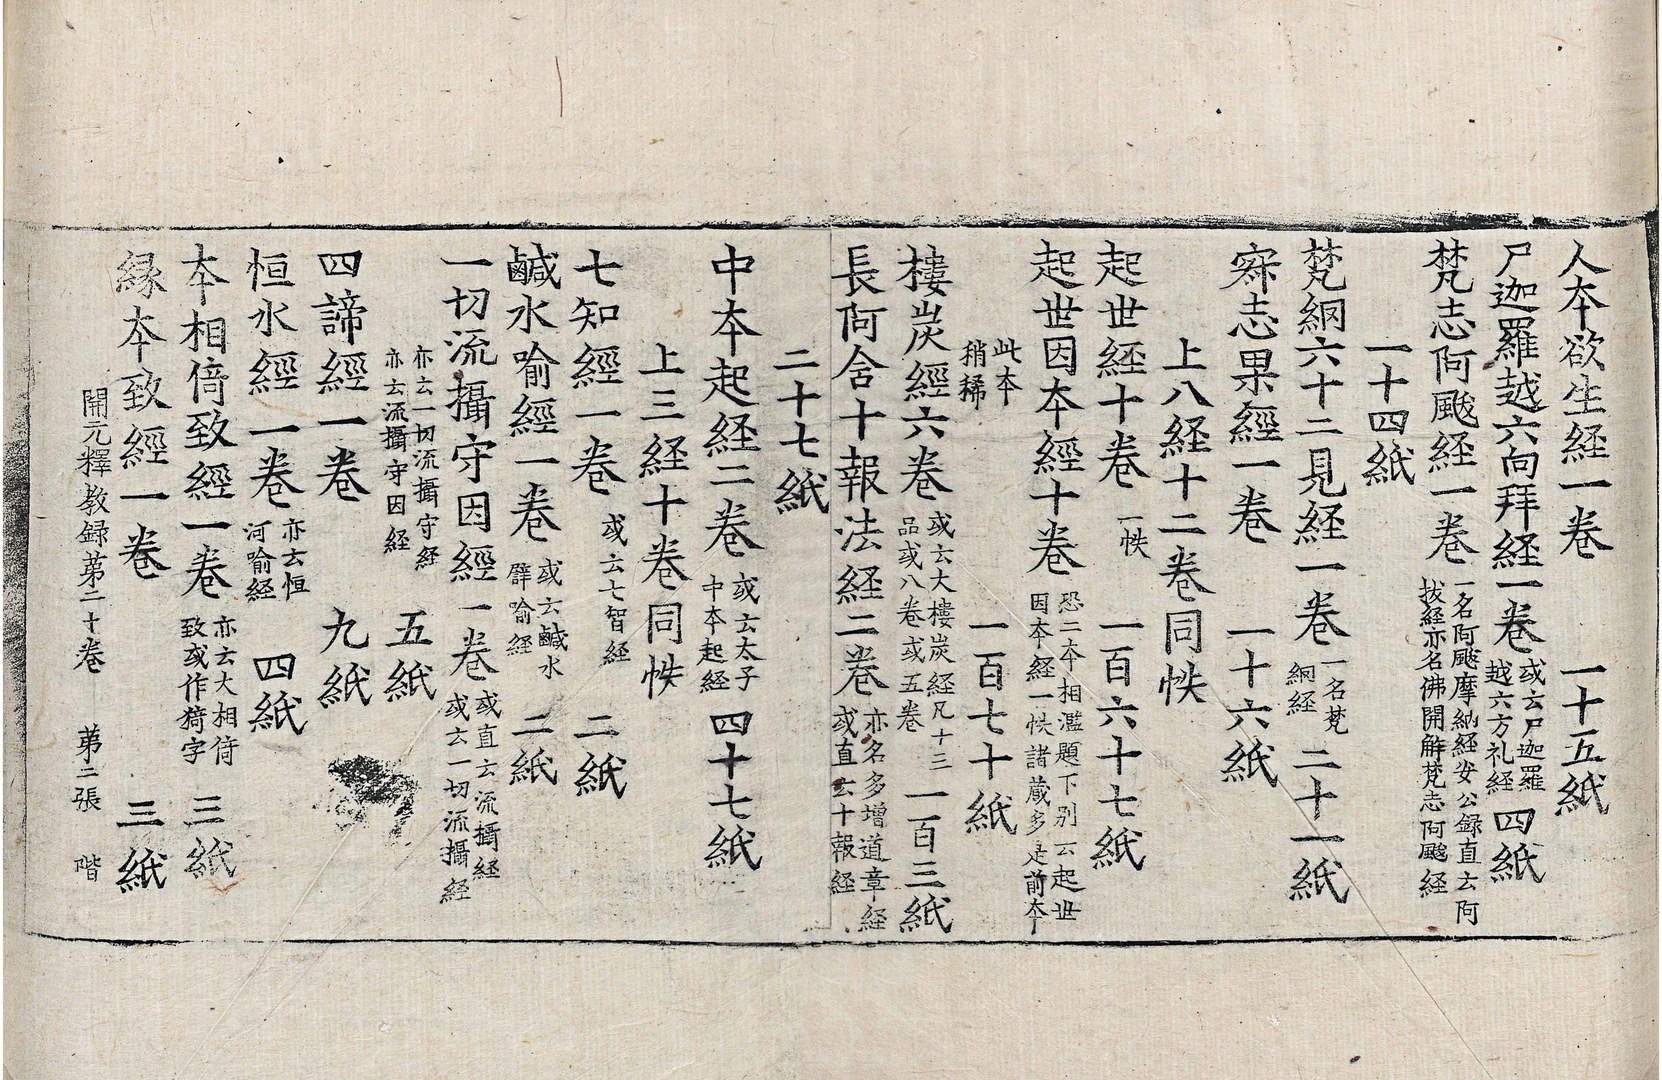 人本欲生経一巻　一十五紙
尸迦羅越六向拜経一巻 或云尸迦羅 越六方礼経 四紙
梵志阿颰経一巻 一名阿颰摩納経安公録直云阿 拔経亦名佛開解梵志阿颰経
一十四紙
梵網六十二見経一巻 一名梵 網経 二十一紙
寂志果經一巻　一十六紙
上八経十二巻同帙
起世経十巻 一帙 一百六十七紙
起世因本經十巻 恐二本相濫題下別云起世 因本経一帙諸蔵多是前本
此本 稍稀 一百七十紙
樓炭經六巻 或云大樓炭経凡十三 品或八巻或五巻 一百三紙
長阿舍十報法経二巻 亦名多増道章経 或直云十報経
二十七紙
中本起経二巻 或云太子 中本起経 四十七紙
上三経十巻同帙
七知經一巻 或云七智経 二紙
鹹水喻經一巻 或云鹹水 譬喻経 二紙
一切流攝守因經一巻 或直云流攝経 或云一切流攝経
亦云一切流攝守経 亦云流攝守因経 五紙
四諦經一巻　九紙
恒水經一巻 亦云恒 河喻経 四紙
本相倚致經一巻 亦云大相倚 致或作猗字 三紙
縁本致經一巻　三紙
開元釋教録苐二十巻　苐二張　階